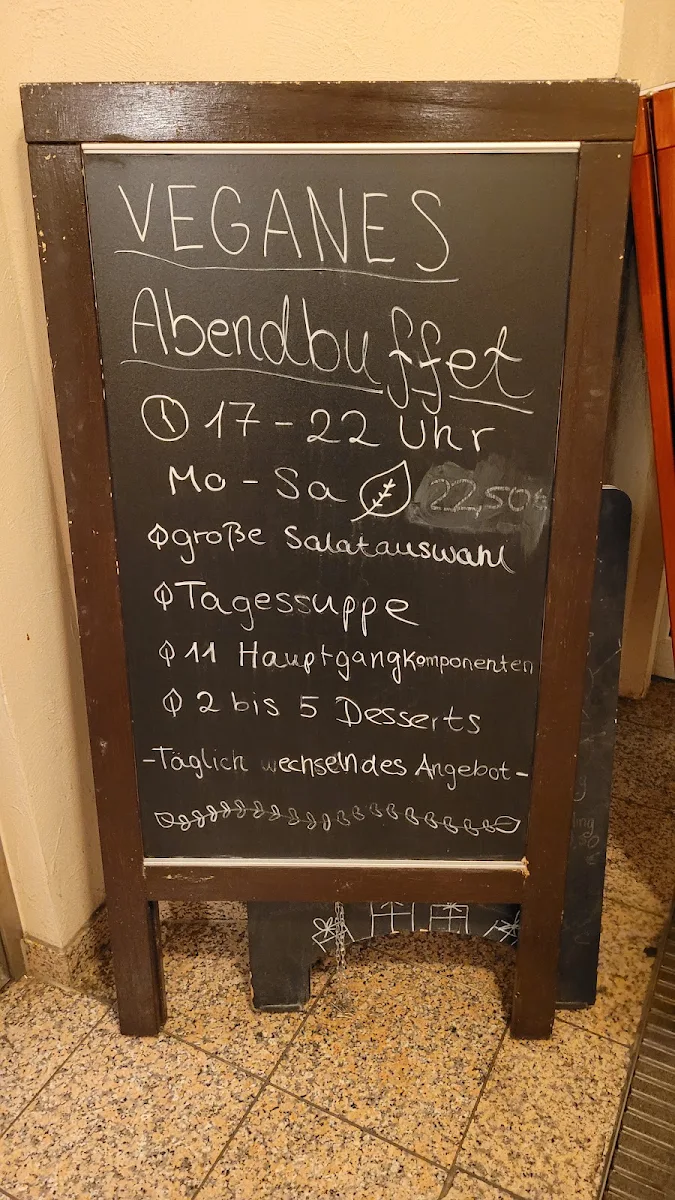 VEGANES
Abendbuffet
17 - 22 Uhr
Mo - Sa 22,50€
große Salatauswahl
Tagessuppe
11 Hauptgangkomponenten
2 bis 5 Desserts
- Täglich wechselndes Angebot -